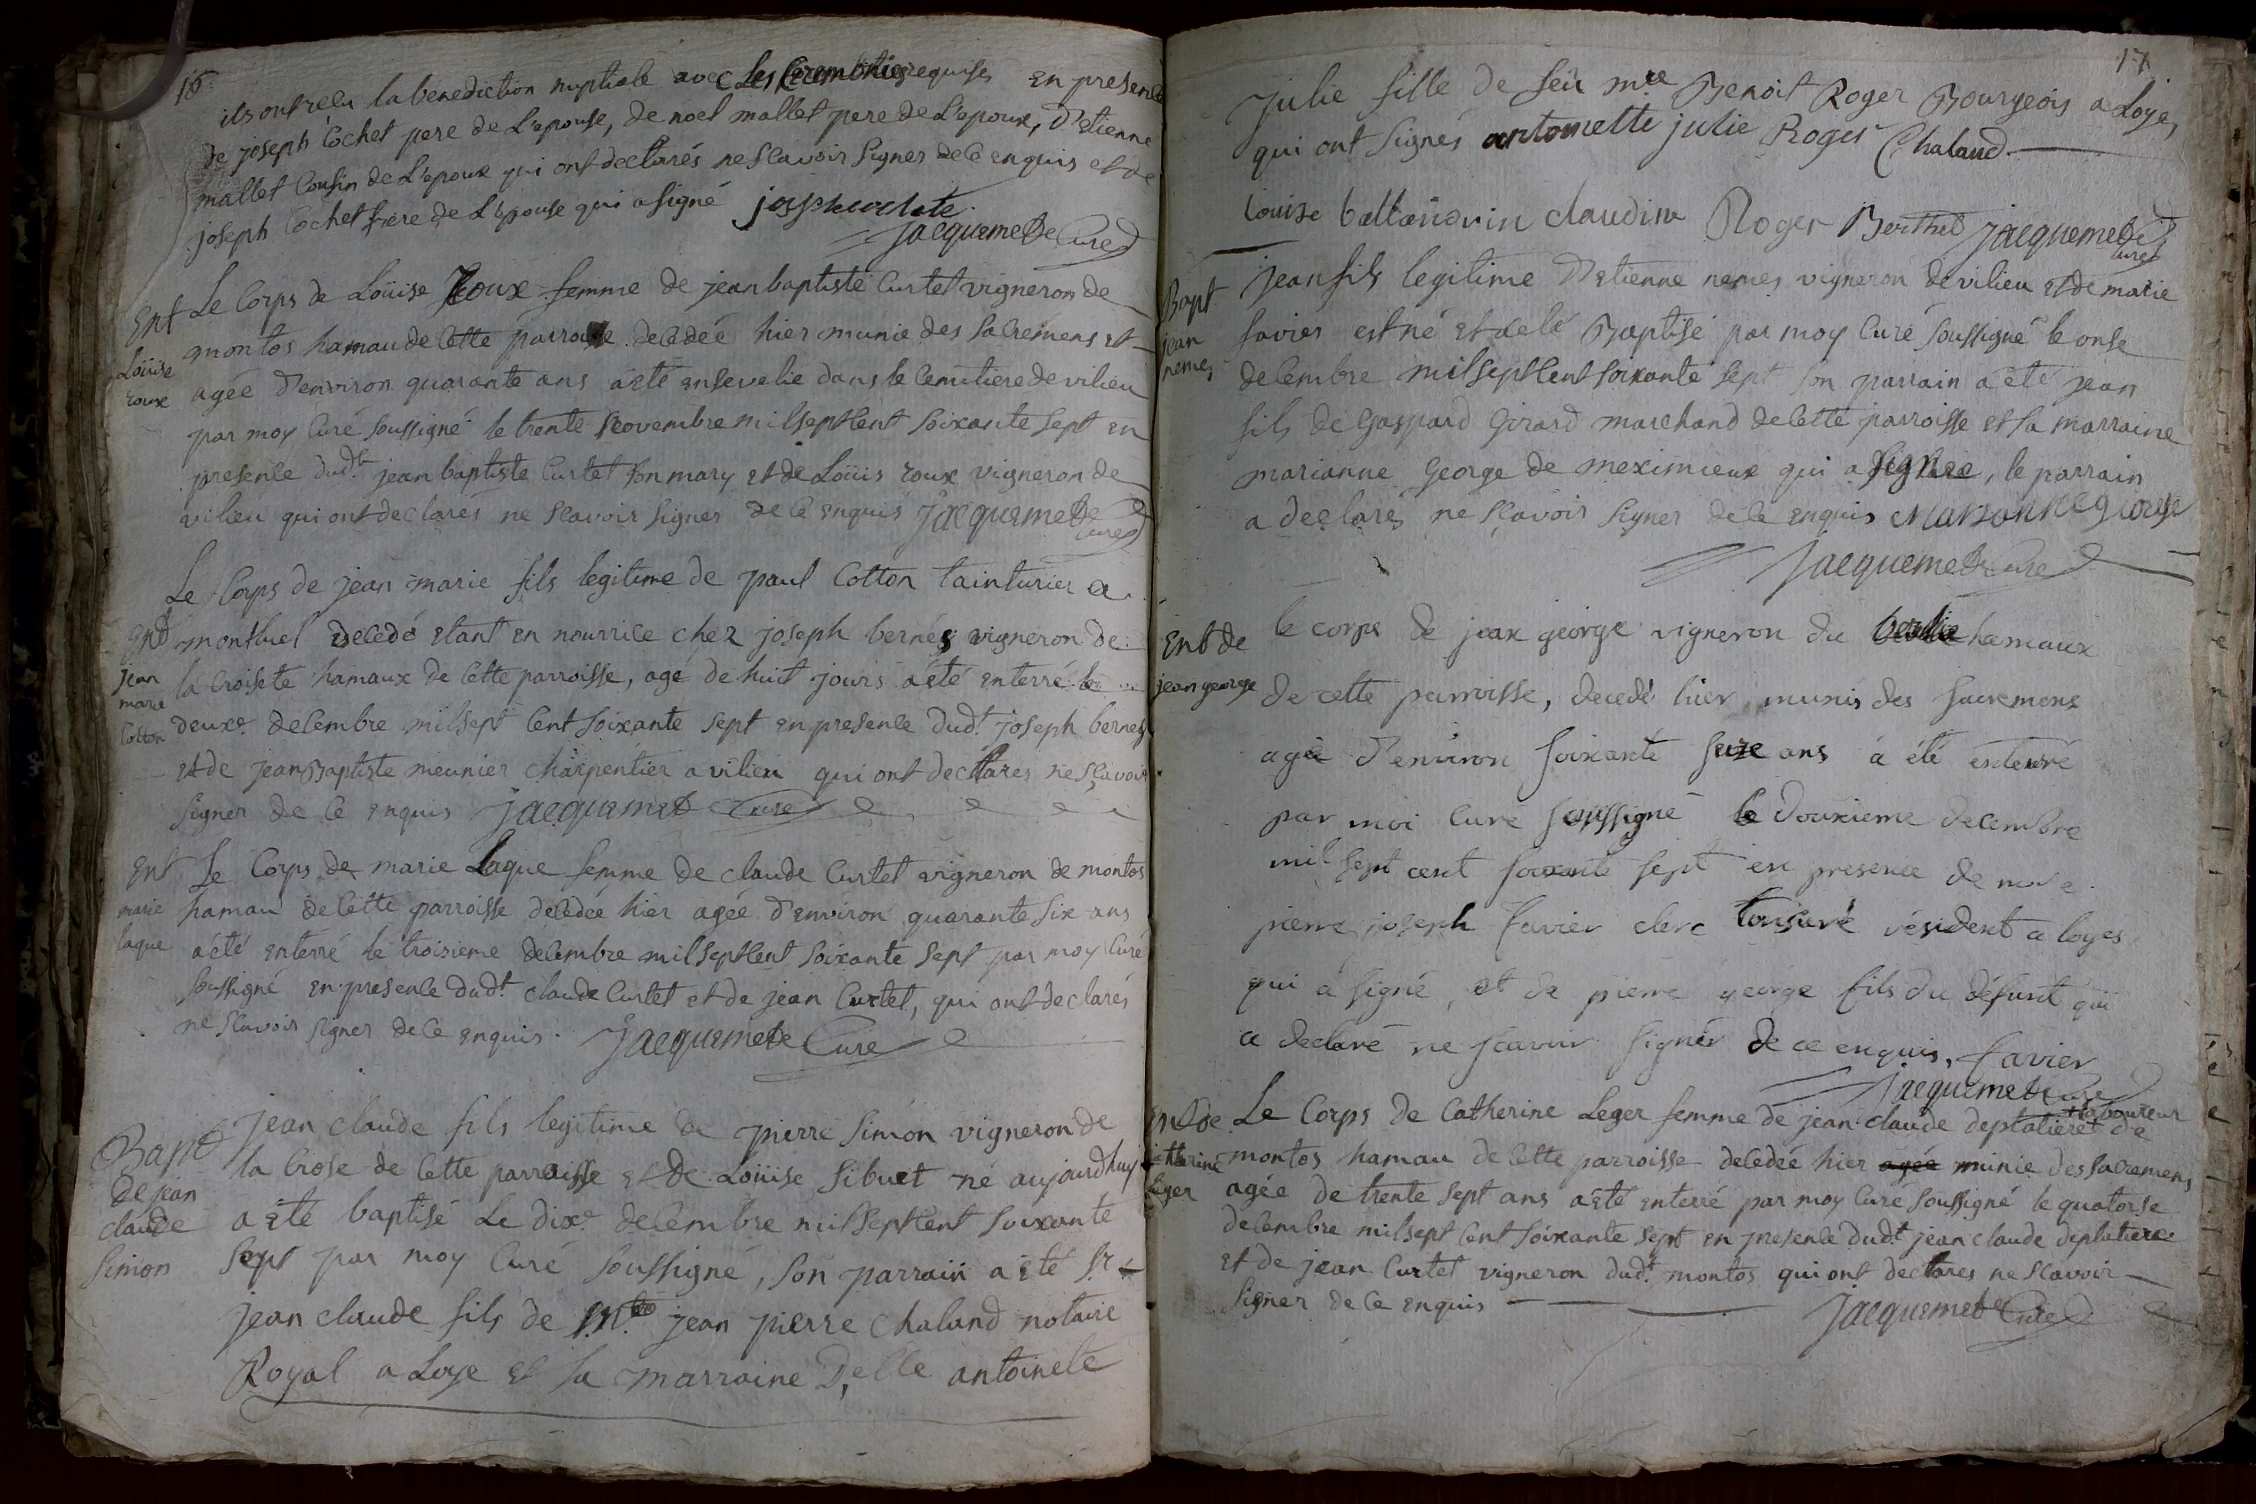 16
ils ont recu la benediction nuptiale avec Les Ceremonies requises en presence
de joseph Cochet pere de L'epouse, de noel mallet pere de L'epoux, D'etienne
mallet Cousin de L'epoux qui ont declarés ne scavoir signer de ce enquis et de
joseph Cochet frere de L'epouse qui a signé
jacquemet Curé
Ent
Loüise
roux
Le Corps de Loüise Roux femme de jean baptiste Curtet vigneron de
montos hamau de cette parroisse decedée hier munie des sacremens et
agée d'environ quarante ans a eté ensevelie dans le cemitiere de vilieu
par moy Curé soussigné le trente Novembre mil sept Cent soixante sept en
presence dudt. jean baptiste Curtet son mary et de Loüis roux vigneron de
vilieu qui ont declarés ne scavoir signer de ce enquis jacquemet
Curé
Ent
jean
marie
Cotton
Le Corps de jean marie fils legitime de paul Cotton tainturier a
montluel decedé etant en nourrice chez joseph bernés vigneron de
la croisete hamaux de cette parroisse, agé de huit jours a eté enterré le
deuxe. decembre mil sept Cent soixante sept en presence dudt. joseph bernes
et de jean Baptiste meunier charpentier a vilieu qui ont declares ne scavoir
signer de ce enquis jacquemet Curé
Ent
marie
laque
Le Corps de marie Laque femme de claude Curtet vigneron de montos
hamau de cette parroisse decedée hier agée d'environ quarante six ans
a eté enterré le troisieme decembre mil sept Cent soixante sept par moy Curé
soussigné en presence dudt. claude Curtet et de jean Curtet, qui ont declarés
ne scavoir signer de ce enquis. jacquemet Curé
Bapt
de jean
claude
Simon
jean claude fils legitime de pierre Simon vigneron de
la Crose de cette parroisse et de Loüise Sibuet né aujourdhuy
a eté baptisé Le dixe. decembre mil sept Cent soixante
sept par moy Curé soussigné, son parrain a eté Sr
jean claude fils de Mtre jean pierre chaland notaire
Royal a Loye et la marraine Delle antoinete
17
julie fille de feü mre Benoit Roger Bourgeois a Loye,
qui ont signés antoinette julie Roger Chaland.
Louise claudine Roger Berthet jacquemet
curé
Bapt
jean
nemes
jean fils legitime D'etienne nemes vigneron de vilieu et de marie
favier est né et a eté Baptisé par moy Curé soussigné le onse
decembre mil sept Cent soixante sept son parrain a été jean
fils de Gaspard Girard marchand de cette parroisse et sa marraine
marianne George de meximieux qui a signée, le parrain
a declarés ne scavoir signer de ce enquis
jacquemet Curé
Ent de
jean george
le corps de jean george vigneron du hamaux
de cette parroisse, decedé hier munis des sacremens
agé d'environ soixante seize ans à été enterré
par moi curé soussigné le douxieme decembre
mil sept cent soixante sept en presence de
pierre joseph favier clerc tonsuré résident a loyes
qui a signé, et de pierre george fils du défunt qui
a declaré ne scavoir signér de ce enquis. favier
jacquemet curé
Ent de
Catherine
Leger
Le Corps de Catherine Leger femme de jean claude deplatiere laboureur de
montos hamau de cette parroisse decedée hier agée munie des sacremens
agée de trente sept ans a eté enterré par moy Curé soussigné le quatorse
decembre mil sept Cent soixante sept en presence dudt. jean claude deplatiere
et de jean Curtet vigneron dudt. montos qui ont declares ne scavoir
signer de ce enquis
jacquemet Curé